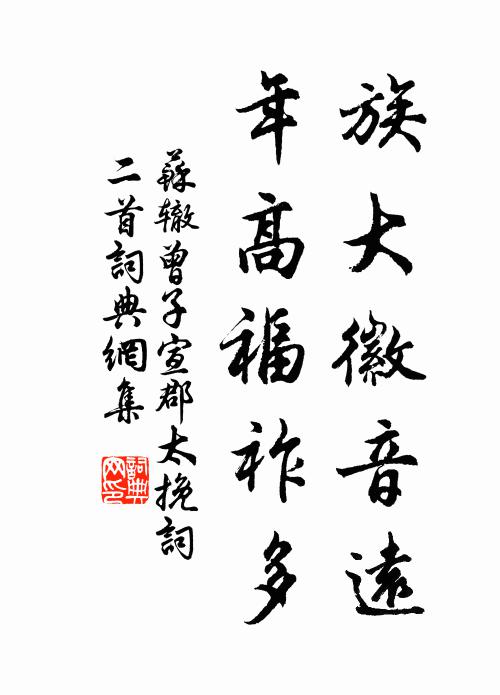 族大徽音遠
年高福祚多
蘇轍曾子宣郡太挽詞
二首詞典網集
詞典
网印